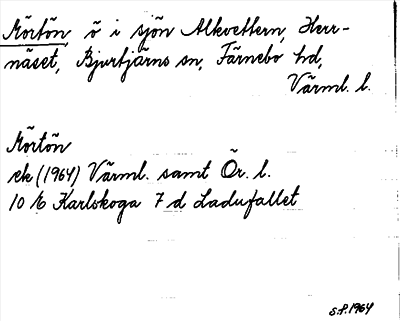 Mörtön, ö i sjön Alkvettern, Herr-
näset, Bjurtjärns sn, Färnebo hd,
Värml. l.
Mörtön
ek (1964) Värml. samt Ör. l.
10 16 Karlskoga 7 d Ladufallet
S.F. 1964